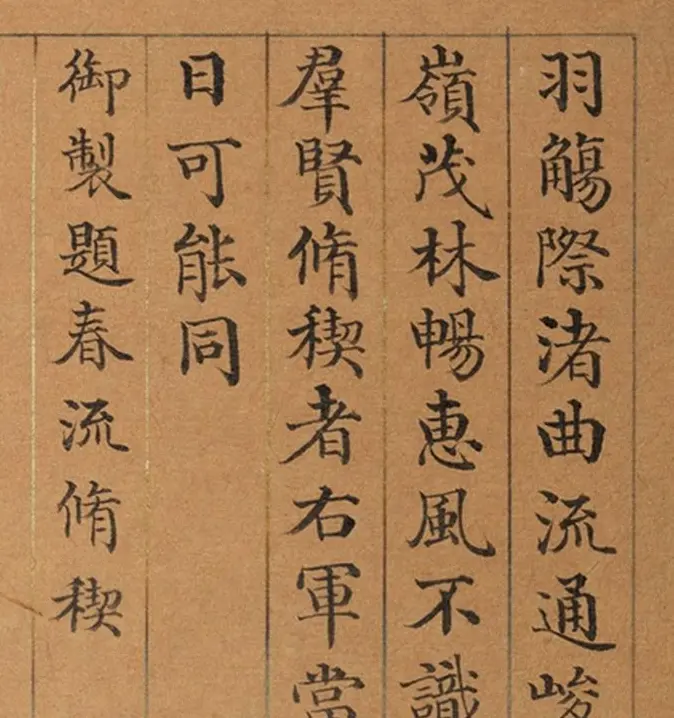 羽觴際渚曲流通峻
嶺茂林暢惠風不識
羣賢脩稧者右軍當
日可能同
御製題春流脩稧